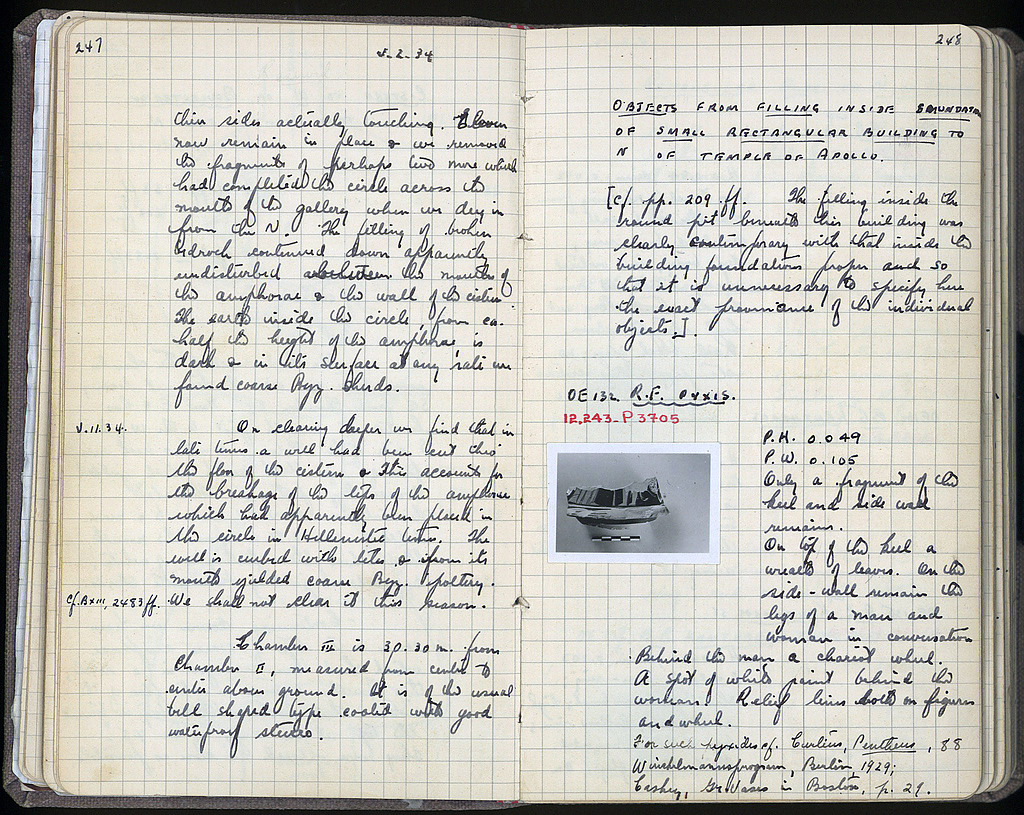 247
V-2-34
their sides actually touching. Eleven
now remain in place & we removed
the fragments of perhaps two more which
had completed the circle across the
mouth of the gallery when we dug in
from the N. The filling of broken
bedrock continued down apparently
undisturbed between the mouths of
the amphorae & the wall of the cistern
The earth inside the circle, from ca.
half the height of the amphorae is
dark & in its surface at any rate we
found coarse Byz. sherds.
V.11.34.
On clearing deeper we find that in
late times a well had been cut thro'
the floor of the cistern & this accounts for
the breakage of the lips of the amphorae
which had apparently been placed in
the circle in Hellenistic times. The
well is curbed with tiles & from its
mouth yielded coarse Byz. pottery.
Cf. B XIII, 2483 ff. We shall not clear it this season.
Chamber III is 30.30 m. from
Chamber II, measured from centre to
centre above ground. It is of the usual
bell shaped type coated with good
waterproof stucco.
248
OBJECTS FROM FILLING INSIDE FOUNDATION
OF SMALL RECTANGULAR BUILDING TO
N OF TEMPLE OF APOLLO.
[cf. pp. 209 ff. The filling inside the
round pit beneath this building was
clearly contemporary with that inside the
building foundations proper and so
that it is unnecessary to specify here
the exact provenience of the individual
objects.].
OE 132 R.F. PYXIS.
12.243-P 3705
P.H. 0.049
P.W. 0.105
Only a fragment of the
heel and side wall
remains.
On top of the heel a
wreath of leaves. On the
side-wall remain the
legs of a man and
woman in conversation
Behind the man, a chariot wheel.
A spot of white paint behind the
woman. Relief lines both on figures
and wheel.
For such pyxides cf. Curtius, Pentheus, 88
Winckelmannsprogram, Berlin, 1929;
Caskey, Gr. Vases in Boston, p. 29.